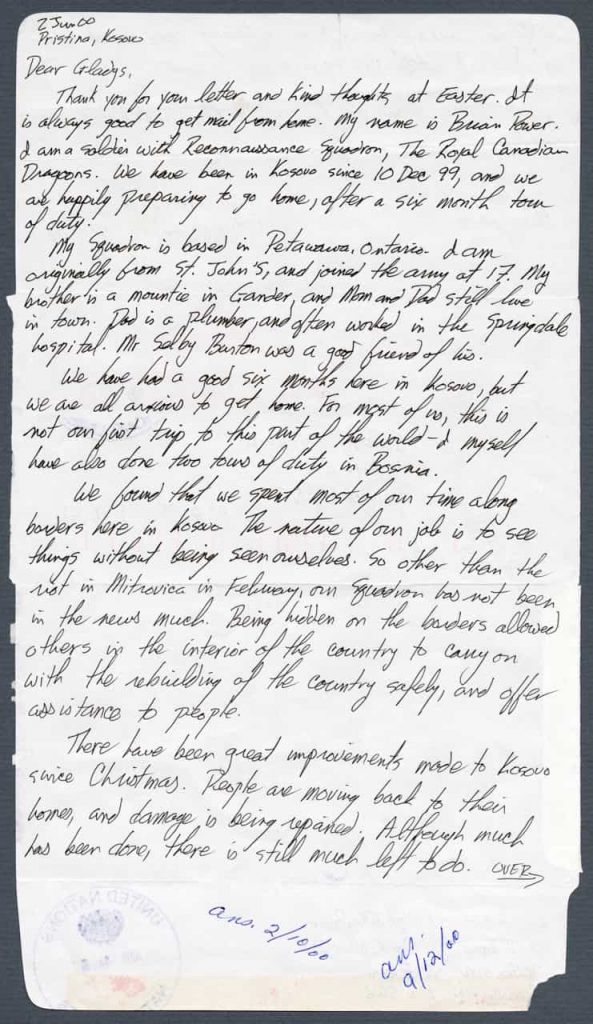 2 Jun 00
Pristina, Kosovo
Dear Gladys,
Thank you for your letter and kind thoughts at Easter. It
is always good to get mail from home. My name is Brian Power.
I am a soldier with Reconnaissance Squadron, The Royal Canadian
Dragoons. We have been in Kosovo since 10 Dec 99, and we
are happily preparing to go home, after a six month tour
of duty.
My Squadron is based in Petawawa, Ontario. I am
originally from St. John's, and joined the army at 17. My
brother is a mountie in Gander, and Mom and Dad still live
in town. Dad is a plumber, and often worked in the Springdale
hospital. Mr Selby Burton was a good friend of his.
We have had a good six months here in Kosovo, but
we are all anxious to get home. For most of us, this is
not our first trip to this part of the world - I myself
have also done two tours of duty in Bosnia.
We found that we spent most of our time along
borders here in Kosovo The nature of our job is to see
things without being seen ourselves. So other than the
riot in Mitrovica in February, our Squadron has not been
in the news much. Being hidden on the borders allowed
others in the interior of the country to carry on
with the rebuilding of the country safely, and offer
assistance to people.
There have been great improvements made to Kosovo
since Christmas. People are moving back to their
homes, and damage is being repaired. Although much
has been done, there is still much left to do. OVER
ans. 2/10/00
ans.
9/12/00
UNITED NATIONS